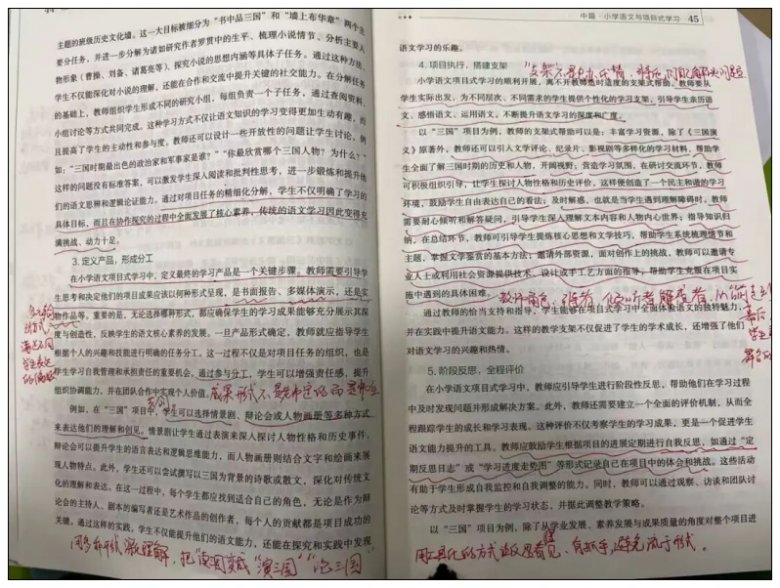 主题的班级历史文化墙。这一大目标被细分为“书中品三国”和“墙上布华章”两个主
要分任务，并进一步分解为诸如研究作者罗贯中的生平、梳理小说情节、分析主要人
物形象（曹操、刘备、诸葛亮等）、探究小说的思想内涵等具体子任务。通过这种方法，
学生不仅能深化对小说的理解，还能在合作和交流中提升关键的社交能力。在分解任务
的基础上，教师组织学生形成不同的研究小组，每组负责一个子任务，通过查阅资料、
小组讨论等方式共同完成。这种学习方式不仅让语文知识的学习变得更加生动有趣，而
且提高了学生的主动性和参与度。教师还可以设计一些开放性的问题让学生讨论，例
如：“三国时期最出色的政治家和军事家是谁？”“你最欣赏哪个三国人物？为什么？”
这样的问题没有标准答案，可以激发学生深入阅读和批判性思考，进一步锻炼和提升他
们的语文思辨和逻辑论证能力。通过对项目任务的精细化分解，学生不仅明确了学习的
具体目标，而且在协作探究的过程中全面发展了核心素养，传统的语文学习因此变得充
满挑战、动力十足。
3.定义产品，形成分工
在小学语文项目式学习中，定义最终的学习产品是一个关键步骤。教师需要引导学
生思考和决定他们的项目成果应该以何种形式呈现，是书面报告、多媒体演示，还是实
物作品等。重要的是，无论选择哪种形式，都应确保学生的学习成果能够充分展示其深
度与创造性，反映学生的语文核心素养的发展。一旦产品形式确定，教师就应指导学生
根据个人的兴趣和技能进行明确的任务分工。这一过程不仅是对项目任务的组织，也是
学生学习自我管理和承担责任的重要机会。通过参与分工，学生可以增强责任感，提升
组织协调能力，并在团队合作中实现个人价值。
例如，在“三国”项目中，学生可以选择情景剧、辩论会或人物画册等多种方式
来表达他们的理解和创见。情景剧让学生通过表演来深入探讨人物性格和历史事件，
辩论会可以提升学生的语言表达和逻辑思维能力，而人物画册则结合文字和绘画来展
现人物特点。此外，学生还可以尝试撰写以三国为背景的诗歌或散文，深化对传统文
化的理解和表达。在这一过程中，每个学生都应找到适合自己的角色，无论是作为辩
论会的主持人、剧本的编写者还是艺术作品的创作者，每个人的贡献都是项目成功的
关键。通过这样的实践，学生不仅能提升他们的语文能力，还能在探究和实践中发现
中篇·小学语文与项目式学习 45
语文学习的乐趣。
4.项目执行，搭建支架
小学语文项目式学习的顺利开展，离不开教师适时适度的支架式帮助。教师要从
学生实际出发，为不同层次、不同需求的学生提供个性化的学习支架，引导学生亲历语
文、感悟语文、运用语文，不断提升语文学习的深度和广度。
以“三国”项目为例，教师的支架式帮助可以是：丰富学习资源，除了《三国演
义》原著外，教师还可以引入文学评论、纪录片、影视剧等多样化的学习材料，帮助学
生全面了解三国时期的历史和人物，开阔视野；营造学习氛围，在研讨交流环节，教师
可积极组织引导，让学生探讨人物性格和历史评价，这样便创造了一个民主和谐的学习
环境，鼓励学生自由表达自己的看法；及时解惑，也就是当学生遇到理解障碍时，教师
需要耐心倾听和解答疑问，引导学生深入理解文本内容和人物内心世界；指导知识归
纳，在总结环节，教师可引导学生提炼核心思想和文学技巧，帮助学生系统梳理情节和
主题，掌握文学鉴赏的基本方法；邀请外部资源，面对创作上的挑战，教师可以邀请专
业人士或利用社会资源提供技术、设计或手工艺方面的指导，帮助学生克服在项目实
施中遇到的具体困难。
通过教师的恰当支持和指导，学生能够在项目式学习中全面体验语文的独特魅力，
并在实践中提升语文能力。这样的教学支架不仅促进了学生的学术成长，还增强了他们
对语文学习的兴趣和热情。
5.阶段反思，全程评价
在小学语文项目式学习中，教师应引导学生进行阶段性反思，帮助他们在学习过程
中及时发现问题并形成解决方案。此外，教师还需要建立一个全面的评价机制，从而全
程跟踪学生的成长和学习表现。这种评价不仅考察学生的学习成果，更是一个促进学生
语文能力提升的工具。教师应鼓励学生根据项目的进展定期进行自我反思，如通过“定
期反思日志”或“学习进度走势图”等形式记录自己在项目中的体会和挑战。这些活动
有助于学生形成自我监控和自我调整的能力。同时，教师可以通过观察、访谈和团队讨
论等方式及时掌握学生的学习状态，并据此调整教学策略。
以“三国”项目为例，除了从学业发展、素养发展与成果质量的角度对整个项目进